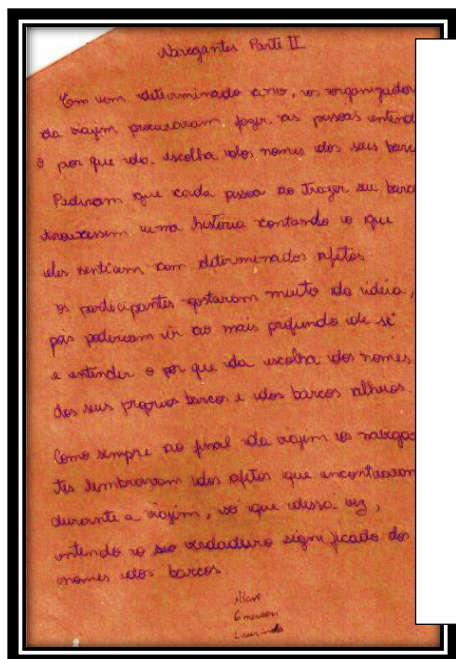 Navegantes Parte II
Em um determinado ano, os organizador
da viagem procuraram fazer as pessoas entend
o por que da escolha dos nomes dos seus barc
Pediram que cada pessoa ao trazer seu barco
trouxessem uma história contando o que
eles sentiam com determinados afetos.
os participantes gostaram muito da idéia,
pois poderiam ir ao mais profundo de si
e entender o por que da escolha dos nomes
dos seus proprios barcos e dos barcos alheios.
Como sempre ao final da viajem os navegan
tes lembravam dos afetos que encontraram
durante a viajim, só que dessa vez,
intendo o seo verdadeiro significado dos
nomes dos barcos.
Emerson